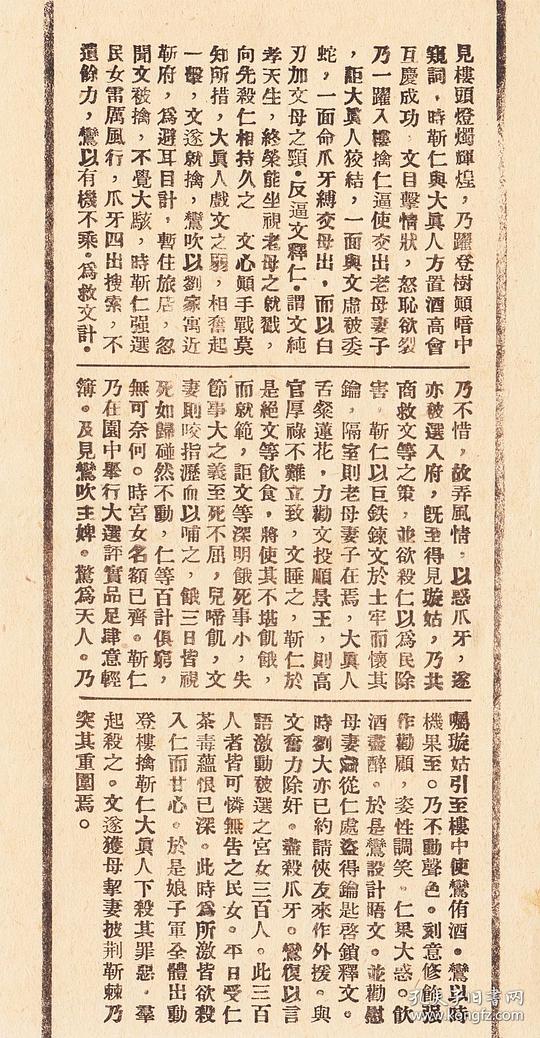 見樓頭燈燭輝煌，乃躍登樹顚暗中
窺詞，時靳仁與大眞人方置酒高會
互慶成功，文目擊情狀，怒恥欲裂
乃一躍入樓擒仁逼使交出老母妻子
，詎大眞人狡結，一面與文虛被委
蛇，一面命爪牙縛交母出，而以白
刃加文母之頸。反逼文釋仁。謂文純
孝天生，終榮能坐視老母之就戮，
向先殺仁相持久之　文心顚手戰莫
知所措，大眞人戲文之弱，相奮起
一擊，文遂就擒，鸞吹以劉家寓近
靳府，爲避耳目計，暫住旅店，忽
聞文被擒，不覺大駭，時靳仁强選
民女雷厲風行，爪牙四出搜索，不
遺餘力，鸞以有機不乘。爲救文計。
乃不惜，故弄風情，以惑爪牙，遂
亦被選入府，旣至得見璇姑，乃共
商救文等之策，並欲殺仁以爲民除
害，靳仁以巨鉄鍊文於土牢而懷其
鑰，隔室則老母妻子在焉，大眞人
舌粲蓮花，力勸文投順景王，則高
官厚祿不難立致，文唾之，靳仁於
是絕文等飮食，將使其不堪飢餓，
而就範，詎文等深明餓死事小，失
節事大之義至死不屈，兒啼飢，文
妻則咬指瀝血以哺之，餓三日皆視
死如歸碰然不動，仁等百計俱窮，
無可奈何。時宮女名額已齊。靳仁
乃在園中舉行大選評賞品足肆意輕
簿。及見鸞吹主婢。驚爲天人。乃
囑璇姑引至樓中使鸞侑酒。鸞以時
機果至。乃不動聲色。刻意修飾
作勸顧，姿性調笑。仁果大惑。飮
酒盡醉。於是鸞設計晤文。並勸慰
母妻從仁處盜得鑰匙啓鎖釋文。
時劉大亦已約請俠友來作外援。與
文奮力除奸。盡殺爪牙。鸞復以言
語激動被選之宮女三百人。此三百
人者皆可憐無告之民女。平日受仁
荼毒蘊恨已深。此時爲所激皆欲殺
入仁而甘心。於是娘子軍全體出動
登樓擒靳仁大眞人下殺其罪惡，羣
起殺之。文遂獲母挈妻披荆靳棘乃
突其重圍焉。
孔夫子旧书网